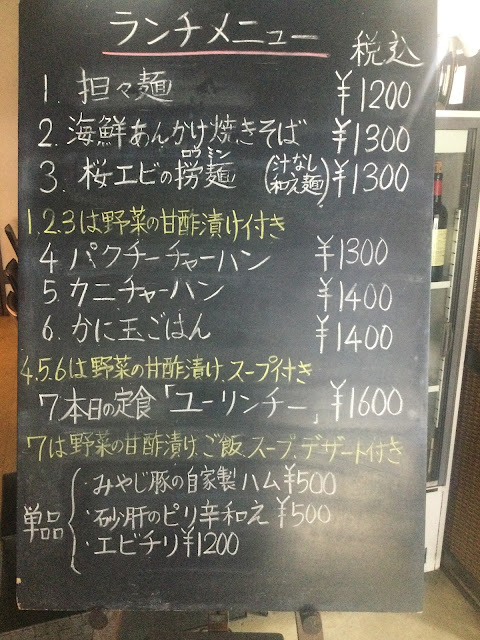 ランチメニュー 税込
1. 担々麺 ¥1200
2. 海鮮あんかけ焼きそば ¥1300
ロウミン
3. 桜エビの撈麺 (汁なし和え麺) ¥1300
1,2,3は野菜の甘酢漬け付き
4 パクチーチャーハン ¥1300
5. カニチャーハン ¥1400
6. かに玉ごはん ¥1400
4.5.6は野菜の甘酢漬け、スープ付き
7 本日の定食「ユーリンチー」 ¥1600
7は野菜の甘酢漬け、ご飯、スープ、デザート付き
単品
・みやじ豚の自家製ハム ¥500
・砂肝のピリ辛和え ¥500
・エビチリ ¥1200